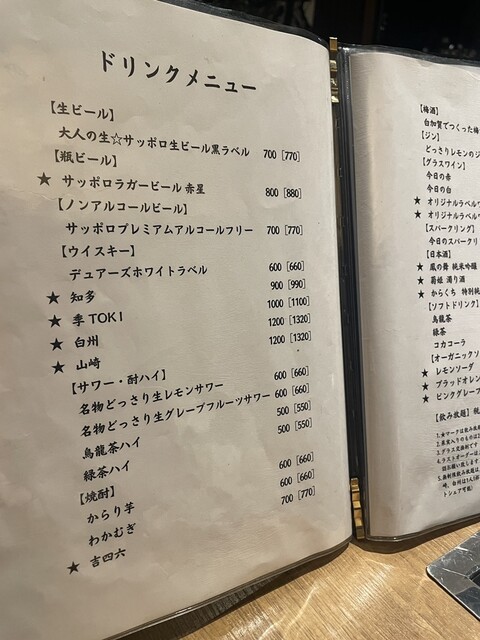 ドリンクメニュー
【生ビール】
大人の生☆サッポロ生ビール黒ラベル 700 [770]
【瓶ビール】
★ サッポロラガービール 赤星 800 [880]
【ノンアルコールビール】
サッポロプレミアムアルコールフリー 700 [770]
【ウイスキー】
デュアーズホワイトラベル 600 [660]
★ 知多 900 [990]
★ 季 TOKI 1000 [1100]
★ 白州 1200 [1320]
★ 山崎 1200 [1320]
【サワー・酎ハイ】
名物どっさり生レモンサワー 600 [660]
名物どっさり生グレープフルーツサワー 600 [660]
烏龍茶ハイ 500 [550]
緑茶ハイ 500 [550]
【焼酎】
からり芋 600 [660]
わかむぎ 600 [660]
★ 吉四六 700 [770]
【梅酒】
白加賀でつくった梅
【ジン】
どっさりレモンのジ
【グラスワイン】
今日の赤
今日の白
★ オリジナルラベル
★ オリジナルラベル
【スパークリング】
今日のスパークリ
【日本酒】
★ 鳳の舞 純米吟醸
★ 菊姫 濁り酒
★ からくち 特別純
【ソフトドリンク】
烏龍茶
緑茶
コカコーラ
【オーガニックソ
★ レモンソーダ
★ ブラッドオレン
★ ピンクグレープ
【飲み放題】
1.★マークは飲み放
3.グラス交換制です
4.ラストオーダーは